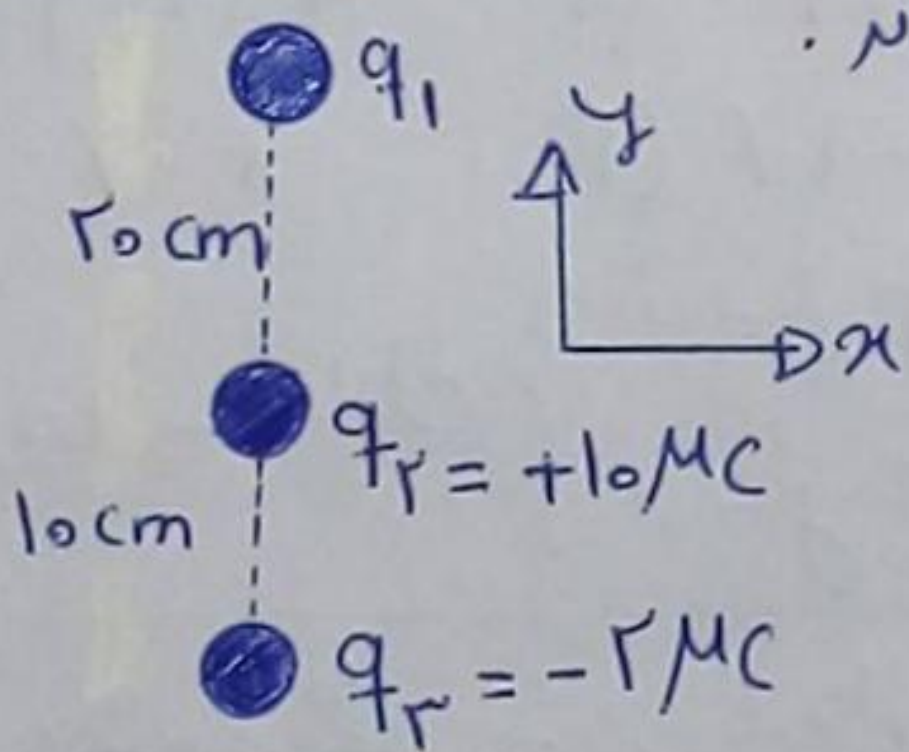 q۱
y
۲۰ cm
x
q۲ = +۱۰ μC
۱۰ cm
q۳ = -۲ μC